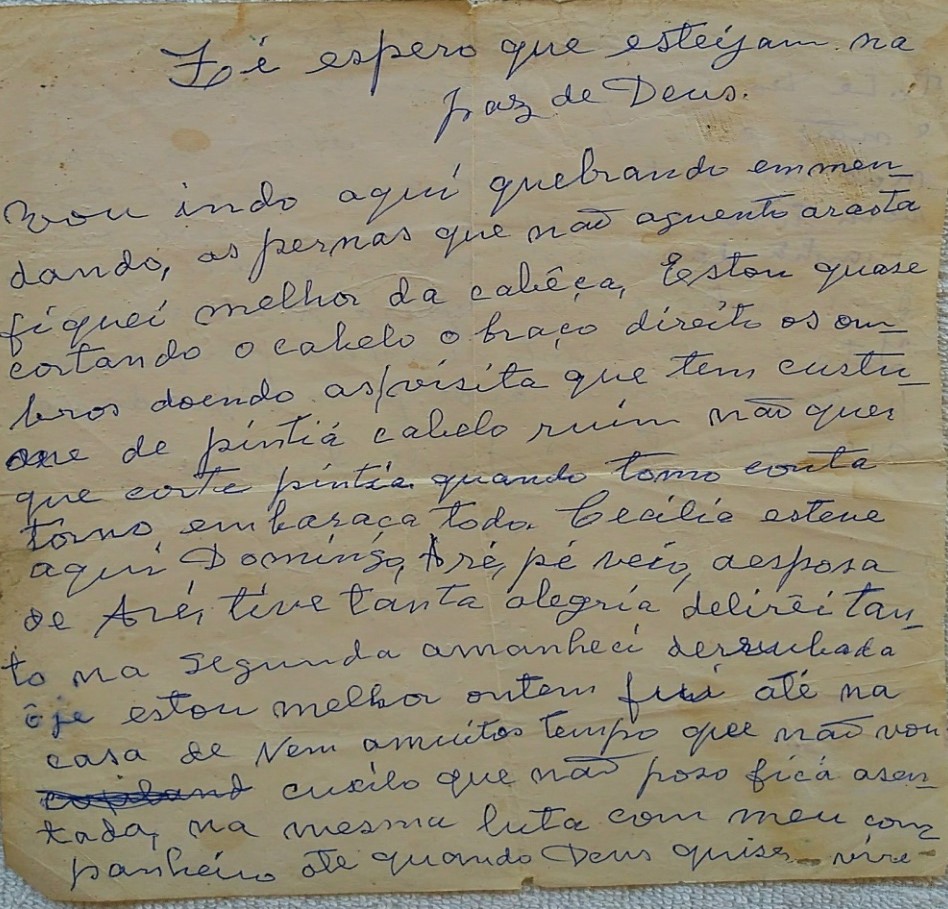 Zé espero que esteijam na
paz de Deus.
Vou indo aquí quebrando emmen_
dando, as pernas que não aguento arasta
fiquei melhor da cabêça, Estou quase
cortando o cabelo o braço direito os om_
bros doendo as visita que tem custu_
me de pintiá cabelo ruim não quer
que corte pintia quando tomo conta
torno embaraca todo. Cecilia esteve
aqui Domingo, Aré, pé veio, aesposa
de Aré, tive tanta alegria delirêi tan_
to na segunda amanheci derrubada
ôje estou melhor ontem fui até na
casa de Nem amuitos tempo que não vou
cuxilo que não poso ficá asen_
tada, na mesma luta com meu com
panheiro ate quando Deus quiser